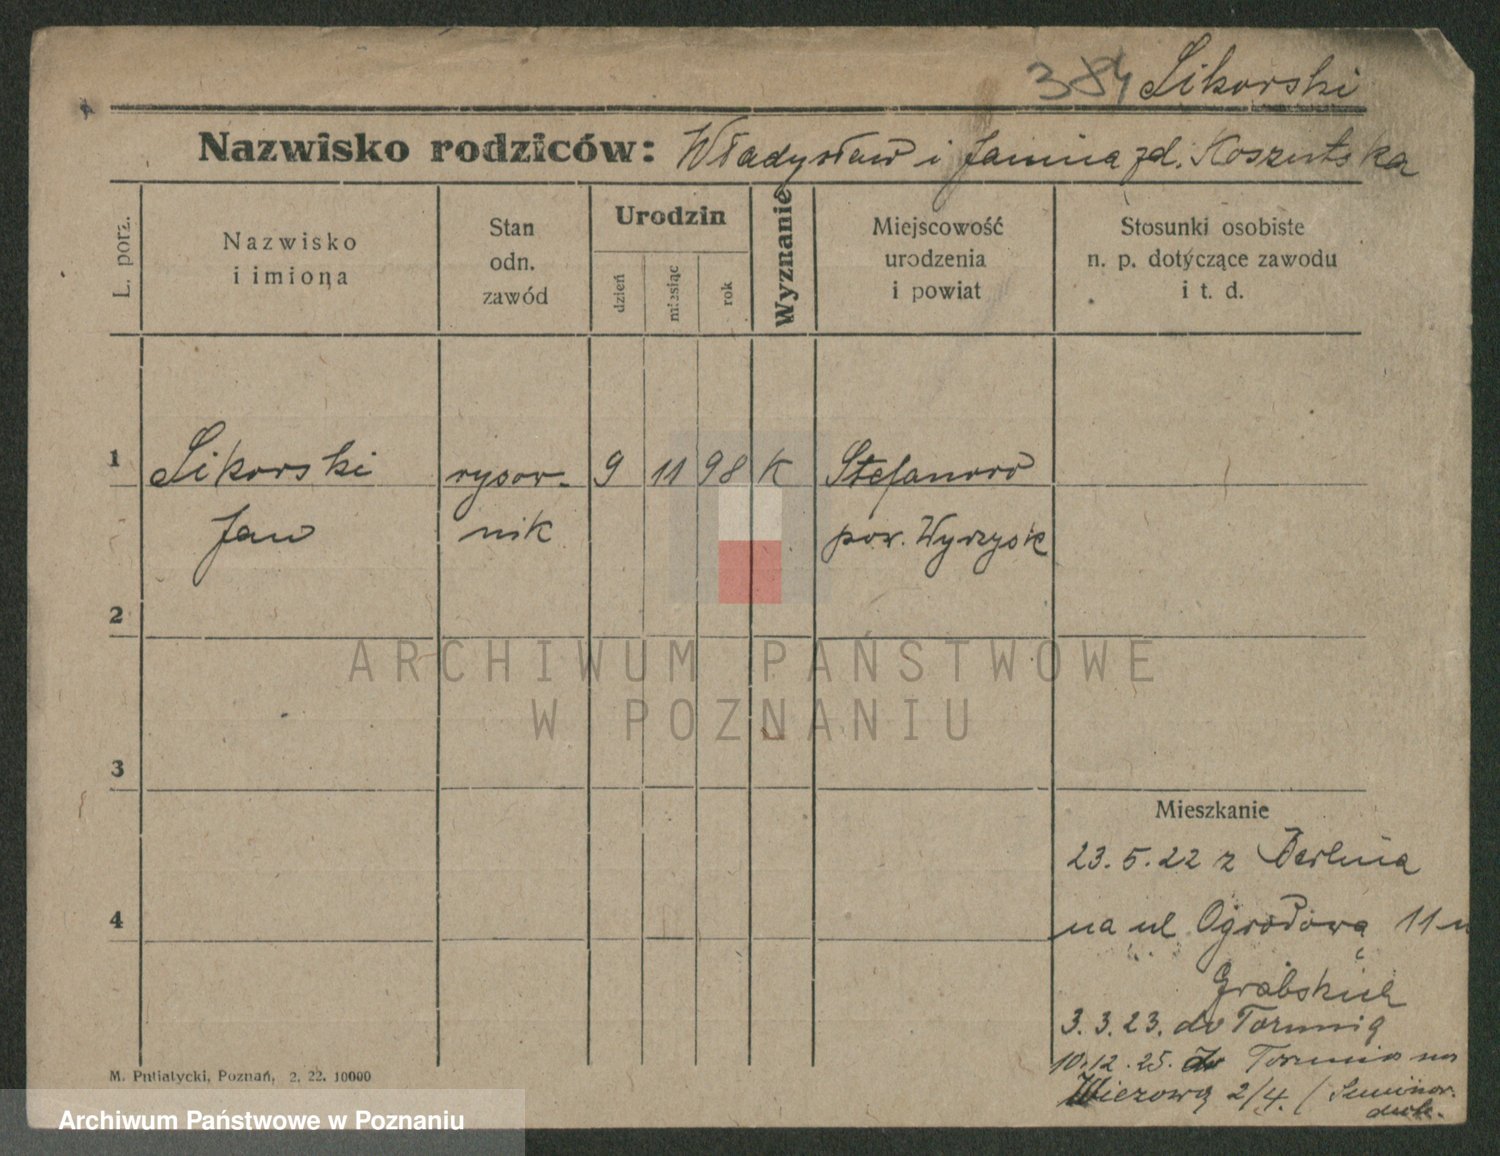 384 Sikorski
Nazwisko rodziców: Władysław i Janina zd. Koszutska
L. porz.
Nazwisko
i imiona
Stan
odn.
zawód
Urodzin
dzień
miesiąc
rok
Wyznanie
Miejscowość
urodzenia
i powiat
Stosunki osobiste
n. p. dotyczące zawodu
i t. d.
1 Sikorski rysow- 9 11 98 K Stefanowo
Jan nik pow. Wyrzysk
2
ARCHIWUM PAŃSTWOWE
W POZNANIU
3
Mieszkanie
23.5.22 z Berlina
4
na ul Ogrodową 11 u
Grabskich
3.3.23. do Torunia
10.12.25. Torunia na
M. Putiatycki, Poznań, 2. 22. 10000
Wiezową 2/4.
Archiwum Państwowe w Poznaniu